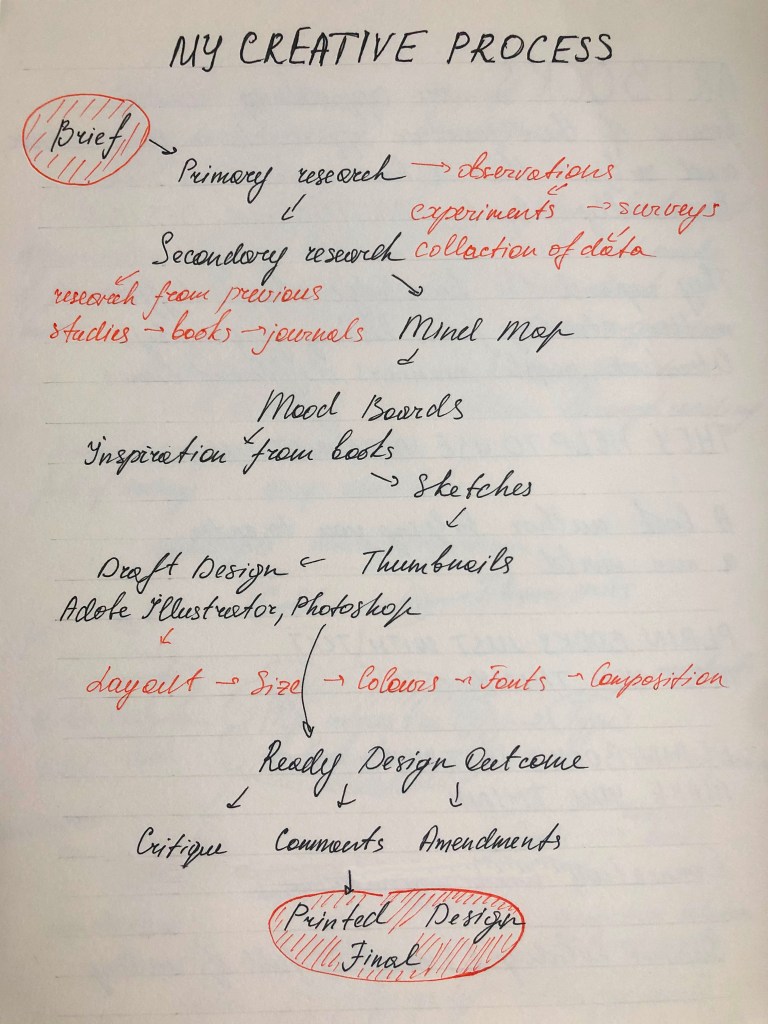 MY CREATIVE PROCESS
Brief
Primary research → observations
experiments → surveys
Secondary research collaction of data
research from previous
studies → books → journals
Mind Map
Mood Boards
Inspiration from books
Sketches
Draft Design ← Thumbnails
Adobe Illustrator, Photoshop
Layout → Size → Colours → Fonts → Composition
Ready Design Outcome
Critique Comments Amendments
Printed Design
Final